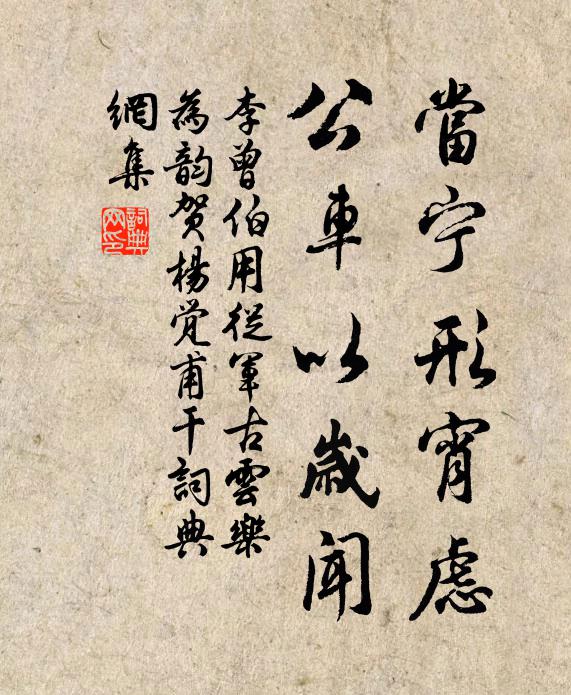 當宁形宵慮
公車以歲聞
李曾伯用從軍古雲樂
為韵贺楊觉甫干詞典
網集
詞典
网印